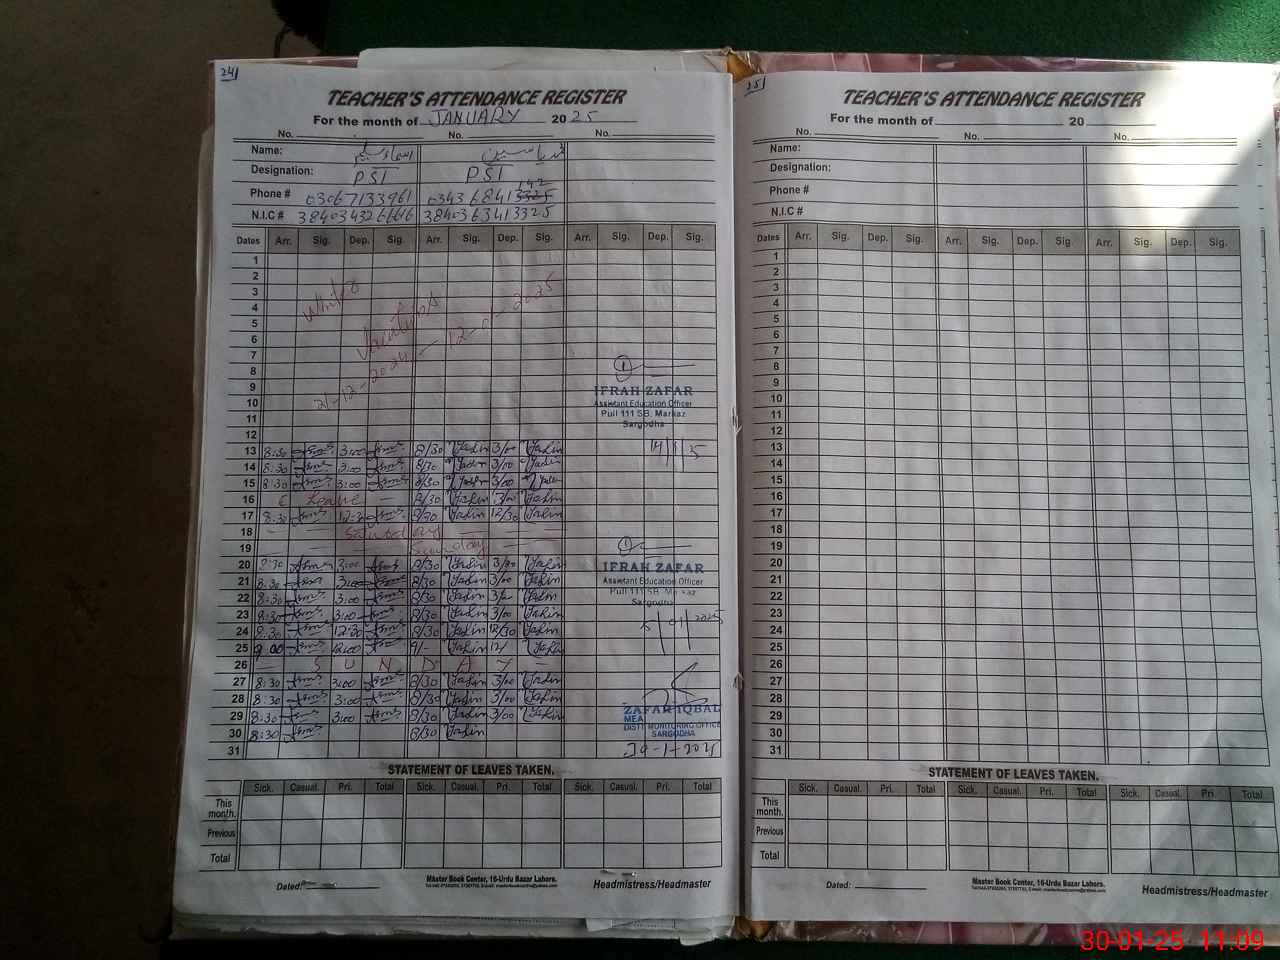 24
TEACHER'S ATTENDANCE REGISTER
For the month of JANUARY 20 25
No. No. No.
Name:
Designation: PST PST
Phone # 03067133961 03436841
N.I.C #
Dates Arr. Sig. Dep. Sig. Arr. Sig. Dep. Sig. Arr. Sig. Dep. Sig.
1
2
3
4
5
6
7
8
9
10
11
12
Winter
21-12-2024 - 12-01-2025
IFRAH ZAFAR
Assistant Education Officer
Pull 111 SB. Markaz
Sargodha
13 8:30 3:00 8/30 Yasin 3/00 Yasin
14 8:30 3:00 8/30 Yasin 3/00 Yasin
15 8:30 3:00 8/30 Yasin 3/00 Yasin
16 C Leave - 8/30 Yasin 3/00 Yasin
17 8:30 12:30 8/30 Yasin 12/30 Yasin
18 Saturday
19 Sunday
20 8:30 3:00 8/30 Yasin 3/00 Yasin
21 8:30 3:00 8/30 Yasin 3/00 Yasin
22 8:30 3:00 8/30 Yasin Yasin
23 8:30 3:00 8/30 Yasin 3/00 Yasin
24 8:30 12:30 8/30 Yasin 12/30 Yasin
25 9:00 12:00 9/- Yasin 12/ Yasin
26 SUNDAY
27 8:30 3:00 8/30 Yasin 3/00 Yasin
28 8:30 3:00 8/30 Yasin 3/00 Yasin
29 8:30 3:00 8/30 Yasin 3/00 Yasin
30 8:30 8/30 Yasin
31
IFRAH ZAFAR
Assistant Education Officer
Pull 111 SB. Markaz
Sargodha
ZAFAR IQBAL
MEA
DISTT MONITORING OFFICE
SARGODHA
STATEMENT OF LEAVES TAKEN.
Sick. Casual. Pri. Total Sick. Casual. Pri. Total Sick. Casual. Pri. Total
This month.
Previous
Total
Dated:
Master Book Center, 16-Urdu Bazar Lahore.
Headmistress/Headmaster
25
TEACHER'S ATTENDANCE REGISTER
For the month of 20
No. No. No.
Name:
Designation:
Phone #
N.I.C #
Dates Arr. Sig. Dep. Sig. Arr. Sig. Dep. Sig. Arr. Sig. Dep. Sig.
1
2
3
4
5
6
7
8
9
10
11
12
13
14
15
16
17
18
19
20
21
22
23
24
25
26
27
28
29
30
31
STATEMENT OF LEAVES TAKEN.
Sick. Casual. Pri. Total Sick. Casual. Pri. Total Sick. Casual. Pri. Total
This month.
Previous
Total
Dated:
Master Book Center, 16-Urdu Bazar Lahore.
Headmistress/Headmaster
30-01-25 11:09